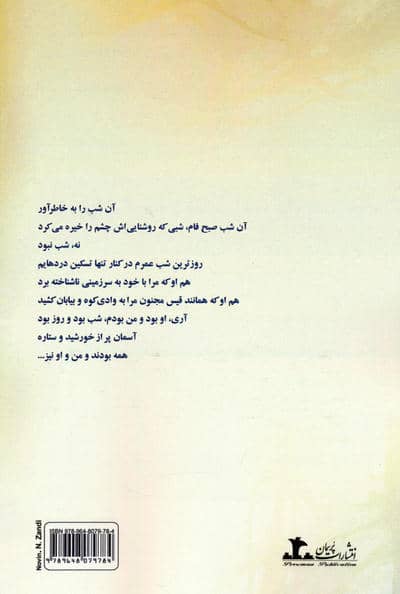 آن شب را به خاطرآور
آن شب صبح فام، شبی‌که روشنایی‌اش چشم را خیره می‌کرد
نه، شب نبود
روزترین شب عمرم درکنار تنها تسکین دردهایم
هم اوکه مرا با خود به سرزمینی ناشناخته برد
هم اوکه همانند قیس مجنون مرا به وادی‌کوه و بیابان‌کشید
آری، او بود و من بودم، شب بود و روز بود
آسمان پر از خورشید و ستاره
همه بودند و من و او نیز...
ISBN 978-964-8079-78-4
9789648079784
Novin. N. Zandi
انتشارات پریمان
Publication